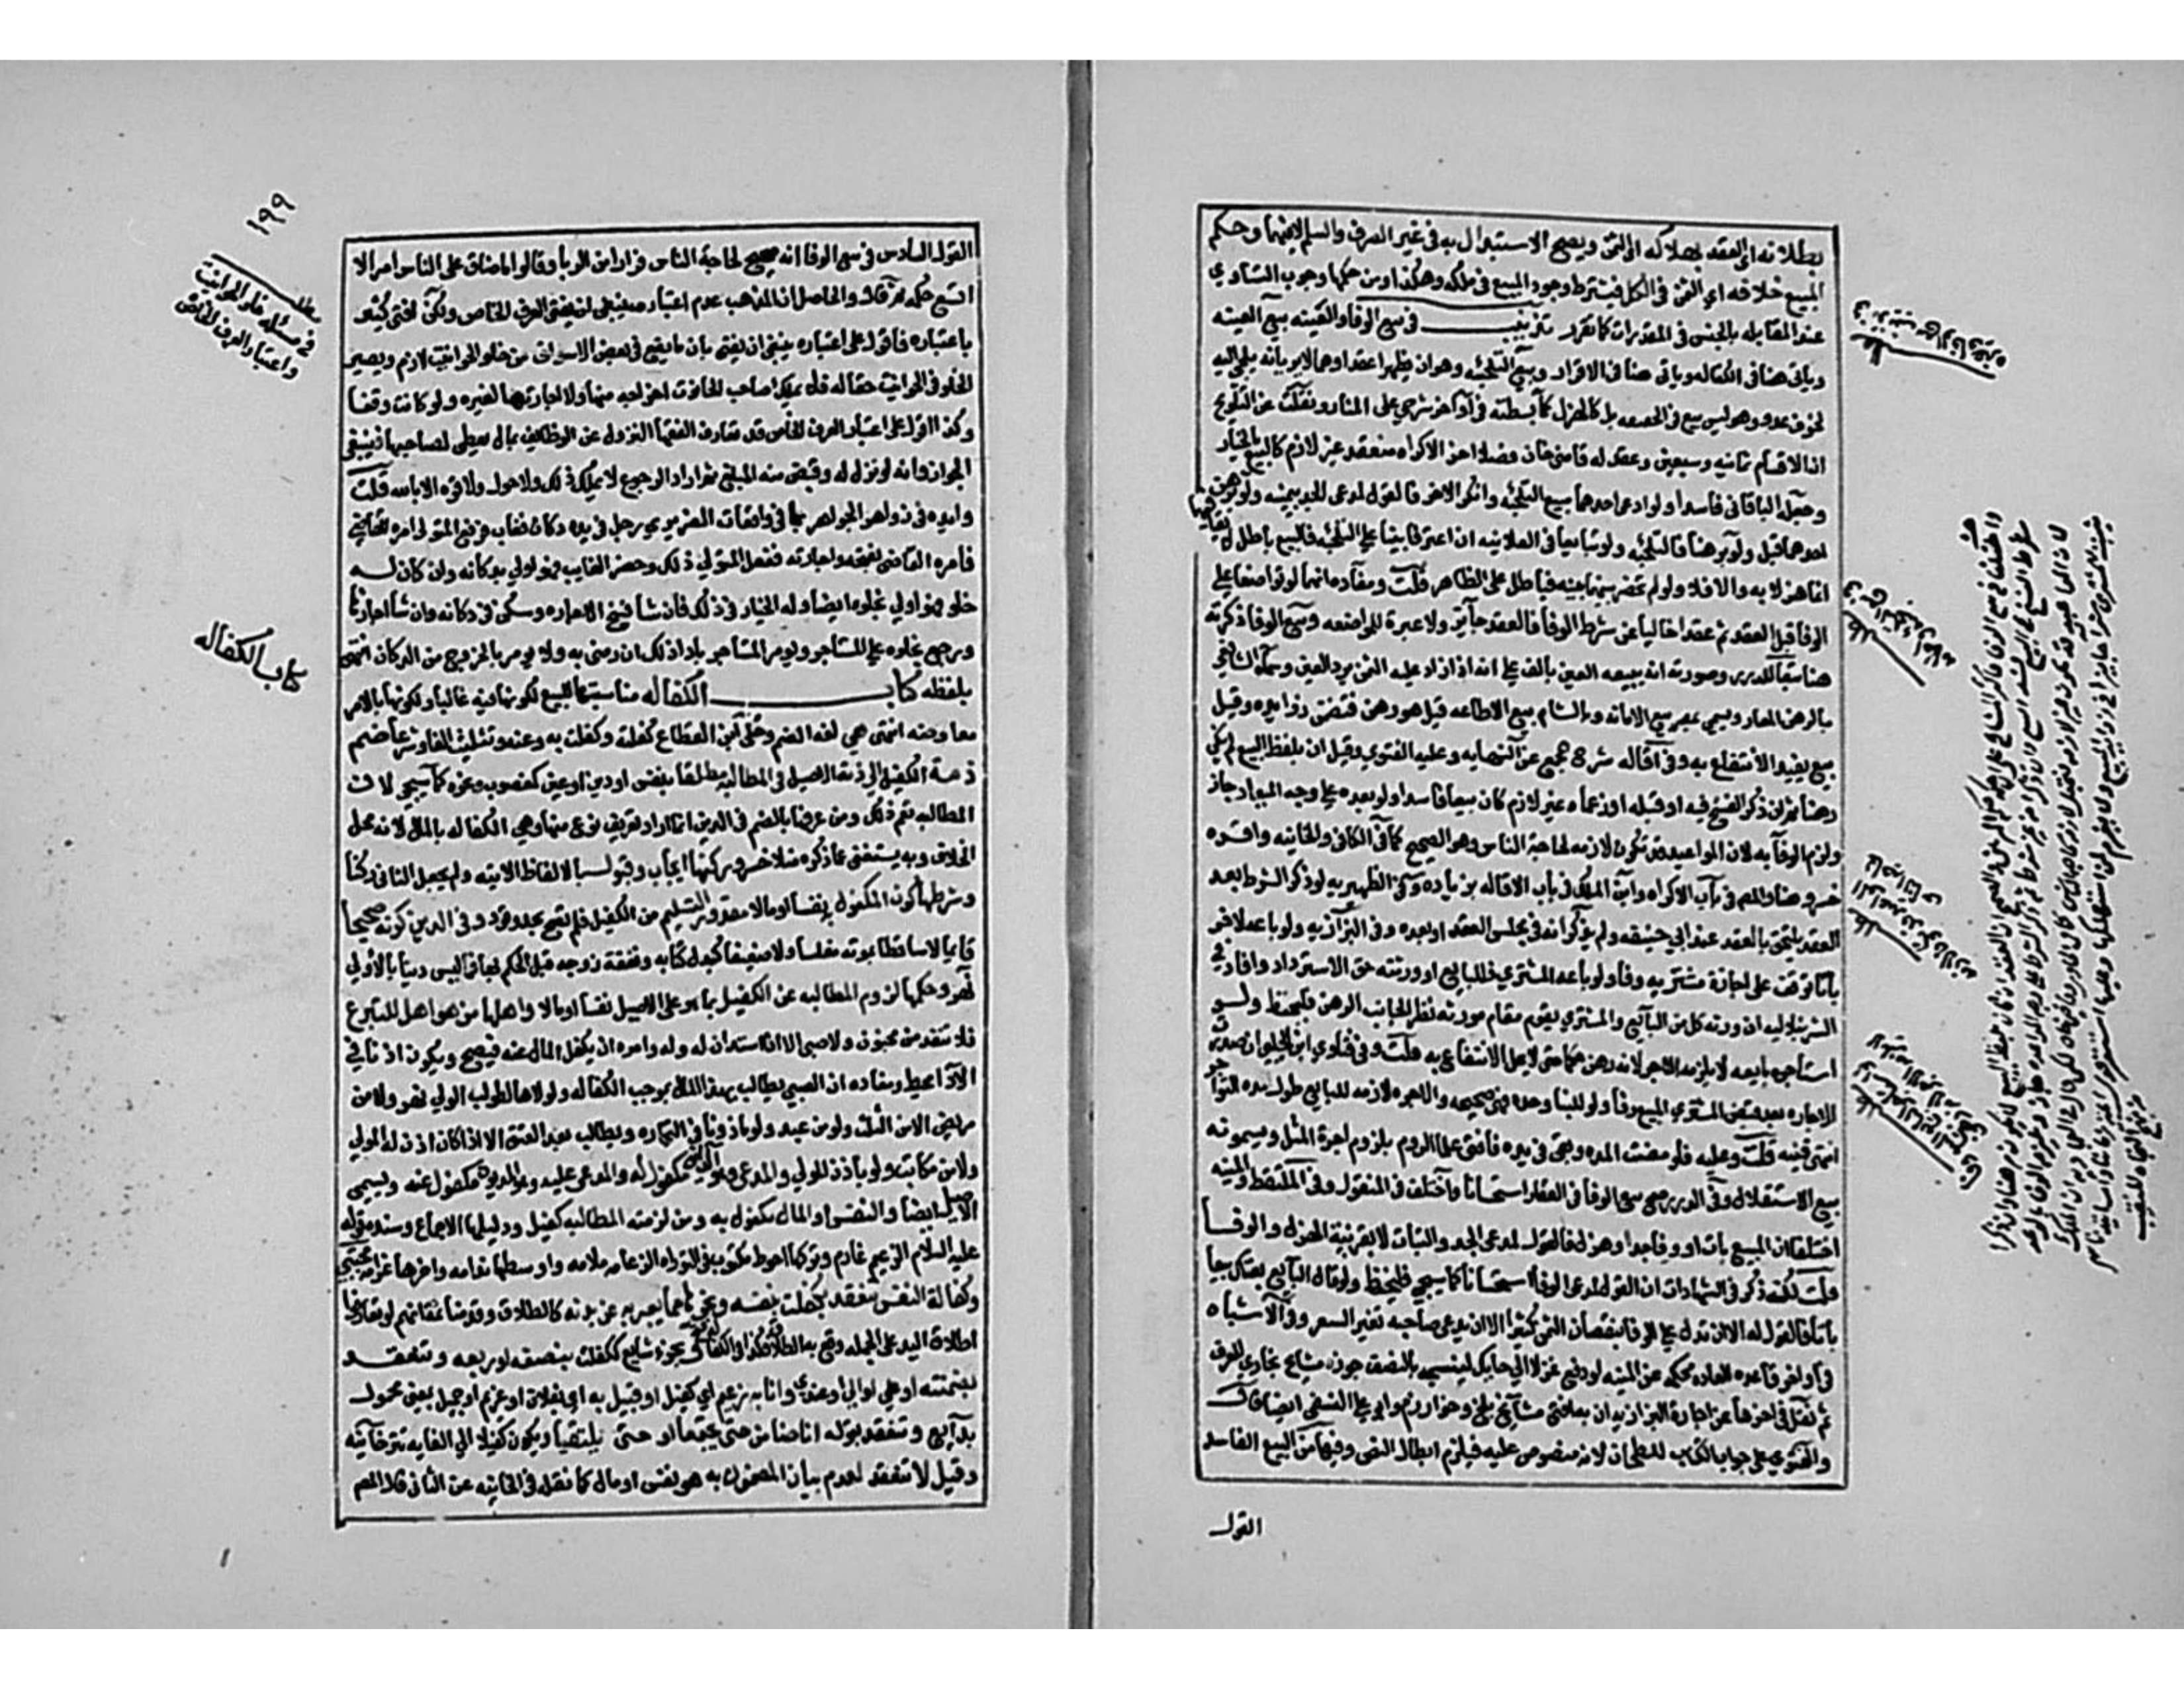 بطلانه اي العقد بهلاكه اي الثمن ويصح الاستبدال به في غير الصرف والسلم لا فيهما وحكم
المبيع خلافه اي الثمن في الكل فيشترط وجود المبيع في ملكه وهكذا ومن حكمها وجوب التساوي
عند المقابله بالجنس في المقدرات كما تقرر تذنيب في بيع الوفا والعينه بيع العينه
وياتي هنا في الكفاله وياتي هنا في الاقرار وبيع التلجئه وهو ان يظهرا عقدا وهما لا يريدانه يلجي اليه
لخوف عدو وهو ليس ببيع في الحقيقه بل كالهزل كما بسطته في اواخر شرحي على المنار ونقلت عن التلويح
ان الاقسام ثمانيه وسبعين وعقد له قاضي خان فصلا اخر الاكراه منعقد غير لازم كالبيع بالخيار
وجعله الباقاني فاسدا ولو ادعى احدهما بيع التلجئه وانكر الاخر فالقول لمدعي الجد بيمينه ولو برهن
احدهما قبل ولو برهنا فالتلجئه ولو تبايعا في العلانيه ان اعترفا ببنائه على التلجئه فالبيع باطل
والا فلا ولو لم تحضرهما نيه فباطل على الظاهر قلت ومفاده انهما لو تواضعا على
الوفا قبل العقد ثم عقدا خاليا عن شرط الوفا فالعقد جايز ولا عبرة للمواضعه وبيع الوفا ذكرته
هنا تبعا للدرر وصورته ان يبيعه العين بالف على انه اذا رد عليه الثمن يرد العين وسماه الشافعي
بالرهن المعاد ويسمى بمصر بيع الامانه وبالشام بيع الاطاعه قيل هو رهن فتضمن زوايده وقيل
بيع يفيد الانتفاع به وفي اقاله شرح مجمع عن النهايه وعليه الفتوي وقيل ان بلفظ البيع لم يكن
رهنا ثم ان ذكر الفسخ فيه او قبله او زعماه غير لازم كان بيعا فاسدا ولو بعده على وجه الميعاد جاز
ولزم الوفا به لان المواعيد قد تكون لازمه لحاجة الناس وهو الصحيح كما في الكافي والخانيه واقره
خسرو هنا والمص في باب الاكراه وابن الملك في باب الاقاله بزياده وفي الظهيريه لو ذكر الشرط بعد
العقد يلتحق بالعقد عند ابي حنيفه ولم يذكر انه في مجلس العقد او بعده وفي البزازيه ولو باعه لاخر
باتا توقف على اجازة مشتريه وفاء ولو باعه المشتري فللبايع او ورثته حق الاسترداد وافاد في
الشرنبلاليه ان ورثة كل من البايع والمشتري يقوم مقام مورثه نظرا لجانب الرهن فليحفظ ولو
استاجره بايعه لا يلزمه الاجر لانه رهن حكما حتى لا يحل الانتفاع به قلت وفي فتاوي ابن الجلبي ان صدرت
الاجاره بعد قبض المشتري المبيع وفا ولو للبنا وحده فهي صحيحه والاجره لازمه للبايع طول مده التواجر
انتهى فتنبه قلت وعليه فلو مضت المده وبقي في يده فافتى علما الروم بلزوم اجرة المثل ويسمونه
بيع الاستغلال وفي الدرر صح بيع الوفا في العقار استحسانا واختلف في المنقول وفي الملتقط والمنيه
اختلفا ان البيع بات او وفا جد او هزل فالقول لمدعي الجد والبتات الا بقرينة الهزل والوفا
قلت لكنه ذكر في الشهادات ان القول لمدعي الوفا استحسانا كما سيجي فليحفظ ولو قال البايع بعتك بيعا
باتا فالقول له الا ان يدل على الوفا بنقصان الثمن كثيرا الا ان يدعي صاحبه تغير السعر وفي الاشباه
في اواخر قاعده العاده محكمه عن المنيه لو دفع غزلا الي حايك لينسجه بالنصف جوزه مشايخ بخاري للعرف
ثم نقل في اخرها عن اجارة البزازيه ان به افتى مشايخ بلخ وخوارزم وابو علي النسفي ايضا قال
والفتوي على جواب الكتاب للطحان لانه منصوص عليه فيلزم ابطال النص وفيها من البيع الفاسد
القول
١٩٩
القول السادس في بيع الوفا انه صحيح لحاجة الناس فرارا من الربا وقالوا ما ضاق على الناس امر الا
اتسع حكمه ثم قال والحاصل ان المذهب عدم اعتبار العرف الخاص ولكن افتى كثير
باعتباره فاقول على اعتباره ينبغي ان يفتى بان ما يقع في بعض الاسواق من خلو الحوانيت لازم ويصير
الخلو في الحوانيت حقا له فلا يملك صاحب الحانوت اخراجه منها ولا اجارتها لغيره ولو كانت وقفا
وكذا اقول على اعتبار العرف الخاص قد تعارف الفقها النزول عن الوظائف بمال يعطى لصاحبها فينبغي
الجواز وانه لو نزل له وقبض منه المبلغ ثم اراد الرجوع لا يملك ذلك ولا حول ولا قوه الا بالله قلت
وايده في زواهر الجواهر بما في واقعات الضريري رجل في يده دكان فغاب فرفع المتولي امره للقاضي
فامره القاضي بفتحه واجارته ففعل المتولي ذلك وحضر الغايب فهو اولي بدكانه وان كان له
خلو فهو اولي بخلوه ايضا وله الخيار في ذلك فان شا فسخ الاجاره وسكن في دكانه وان شا اجازها
ورجع بخلوه على المستاجر ويومر المستاجر باداء ذلك ان رضي به والا يومر بالخروج من الدكان انتهى
بلفظه كتاب الكفاله مناسبتها للبيع لكونها فيه غالبا ولكونها بالامر
معاوضه انتهى هي لغة الضم وحكى ابن القطاع كفلته وكفلت به وعنه وتثليث الفا وشرعا ضم
ذمة الكفيل الي ذمة الاصيل في المطالبة مطلقا بنفس او دين او عين كمغصوب ونحوه كما سيجي لان
المطالبه تعم ذلك ومن عرفها بالضم في الدين انما اراد تعريف نوع منها وهي الكفاله بالمال لانه محل
الخلاف وبه يستغنى عما ذكره منلا خسرو وركنها ايجاب وقبول بالالفاظ الاتيه ولم يجعل الثاني ركنا
وشرطها كون المكفول به نفسا او مالا مقدور التسليم من الكفيل فلم تصح بحد وقود وفي الدين كونه صحيحا
قايما لا ساقطا بموته مفلسا ولا ضعيفا كبدل كتابه ونفقة زوجه قبل الحكم بها فما ليس دينا بالاولي
نهر وحكمها لزوم المطالبه على الكفيل بما هو على الاصيل نفسا او مالا واهلها من هو اهل للتبرع
فلا تنفذ من مجنون ولا صبي الا اذا استدان له وليه وامره ان يكفل المال عنه فيصح ويكون اذنا في
الادا محيط ومفاده ان الصبي يطالب بهذا المال بموجب الكفاله ولولاها لطولب الولي نهر ولا من
مريض الا من الثلث ولا من عبد ولو ماذونا في التجاره ويطالب بعد العتق الا اذا كان اذن له المولي
ولا من مكاتب ولو باذن المولي والمدعي وهو الداين مكفول له والمدعى عليه وهو المديون مكفول عنه ويسمى
الاصيل ايضا والنفس او المال مكفول به ومن لزمته المطالبه كفيل ودليلها الاجماع وسنده قوله
عليه السلام الزعيم غارم وتركها احوط مكتوب في التوراه الزعامه اولها ملامه واوسطها ندامه واخرها غرامه مجتبي
وكفالة النفس تنعقد بكفلت بنفسه ونحوها مما يعبر به عن بدنه كالطلاق وقدمنا ثمة انهم لو تعارفوا
اطلاق اليد على الجمله وقع به الطلاق فكذا في الكفاله وبجزء شايع ككفلت بنصفه او ربعه وتنعقد
بضمنته او علي او الي او عندي وانا به زعيم اي كفيل او قبيل به اي بفلان او غريم او حميل بمعنى محمول
بدايع وتنعقد بقوله انا ضامن حتى يجتمعا او حتى يلتقيا ويكون كفيلا الي الغايه تترخانيه
وقيل لا تنعقد لعدم بيان المضمون به هو نفس او مال كما نقله في الخانيه عن الثاني قال المص
مطلب
في مسئله خلو الحوانيت
واعتبار العرف الخاص
كتاب الكفاله